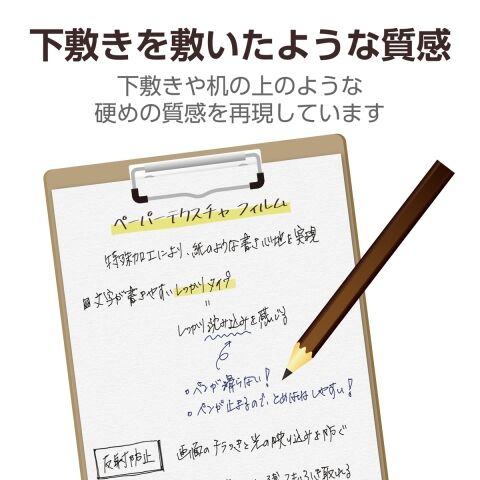 下敷きを敷いたような質感
下敷きや机の上のような
硬めの質感を再現しています
ペーパーテクスチャフィルム
特殊加工により、紙のような書き心地を実現
文字が書きやすいしっかりタイプ
=
しっかり沈み込みを感じる
ペンが滑らない!
ペンが止まるので、とめはねはしやすい!
反射防止
画面のチラつきと光の映り込みを防ぐ